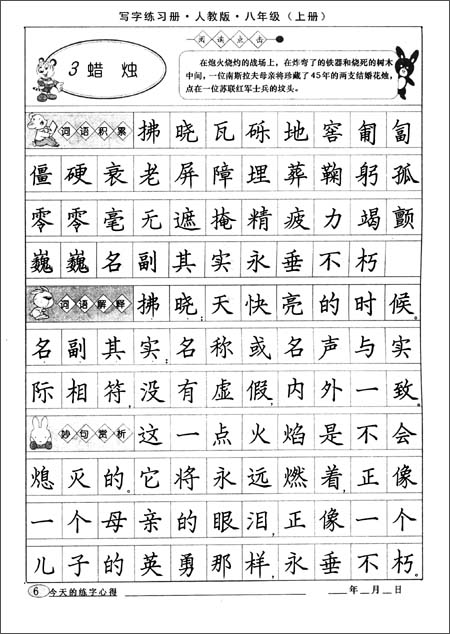 写字练习册·人教版·八年级（上册）
阅读点击
3 蜡烛
在炮火烧灼的战场上，在炸弯了的铁器和烧死的树木
中间，一位南斯拉夫母亲将珍藏了45年的两支结婚花烛，
点在一位苏联红军士兵的坟头。
词语积累 拂晓瓦砾地窖匍匐
僵硬衰老屏障埋葬鞠躬孤
零零毫无遮掩精疲力竭颤
巍巍名副其实永垂不朽
词语解释 拂晓：天快亮的时候。
名副其实：名称或名声与实
际相符，没有虚假，内外一致。
妙句赏析 这一点火焰是不会
熄灭的。它将永远燃着，正像
一个母亲的眼泪，正像一个
儿子的英勇那样，永垂不朽。
6 今天的练字心得 年 月 日